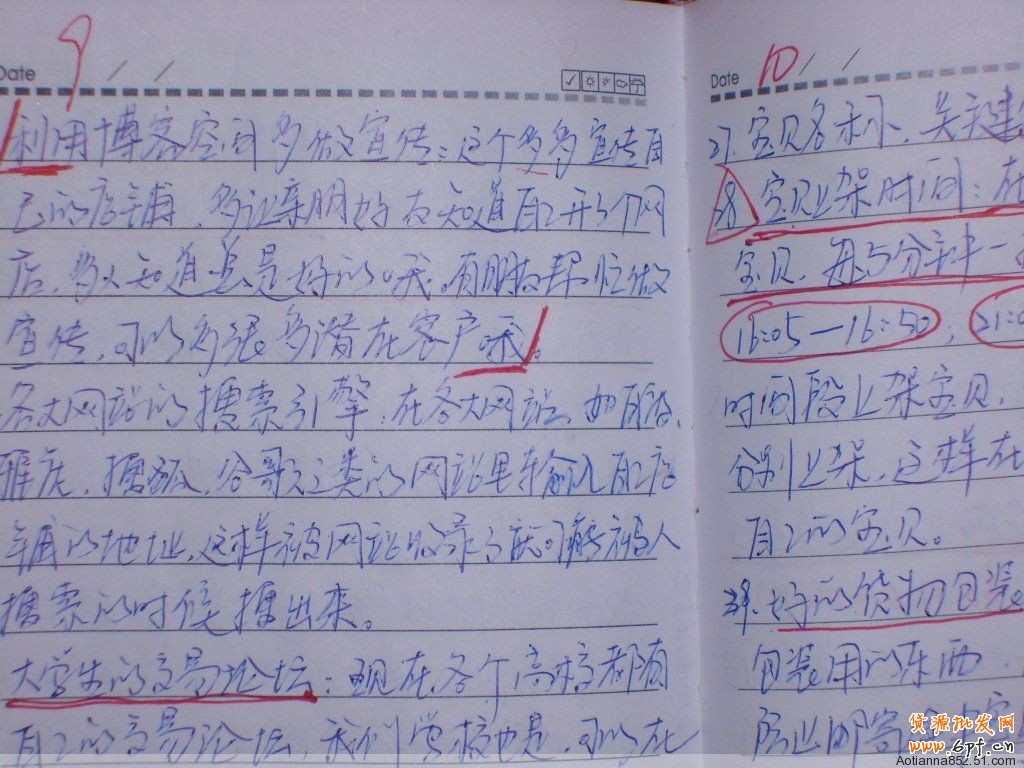 Date 9 / /
利用博客空间多做宣传：这个多多宣传自
己的店铺，多让亲朋好友知道自己开了个网
店，多人知道总是好的哦。有朋友帮忙做
宣传，可以多很多潜在客户哦。
各大网站的搜索引擎：在各大网站，如百度，
雅虎，搜狐，谷歌之类的网站里输入自己店
铺的地址，这样被网站收录了就可能被人
搜索的时候搜出来。
大学生的交易论坛：现在各个高校都有
自己的交易论坛，我们学校也是，可以在
Date 10 / /
27.宝贝名称、关键
28 宝贝上架时间：在
宝贝，每5分钟一
16:05—16:50，21:0
时间段上架宝贝，
分别上架，这样在
自己的宝贝。
29.好的货物包装
包装用的东西
货源批发网
www.6pf.cn
Aotianna852.51.com